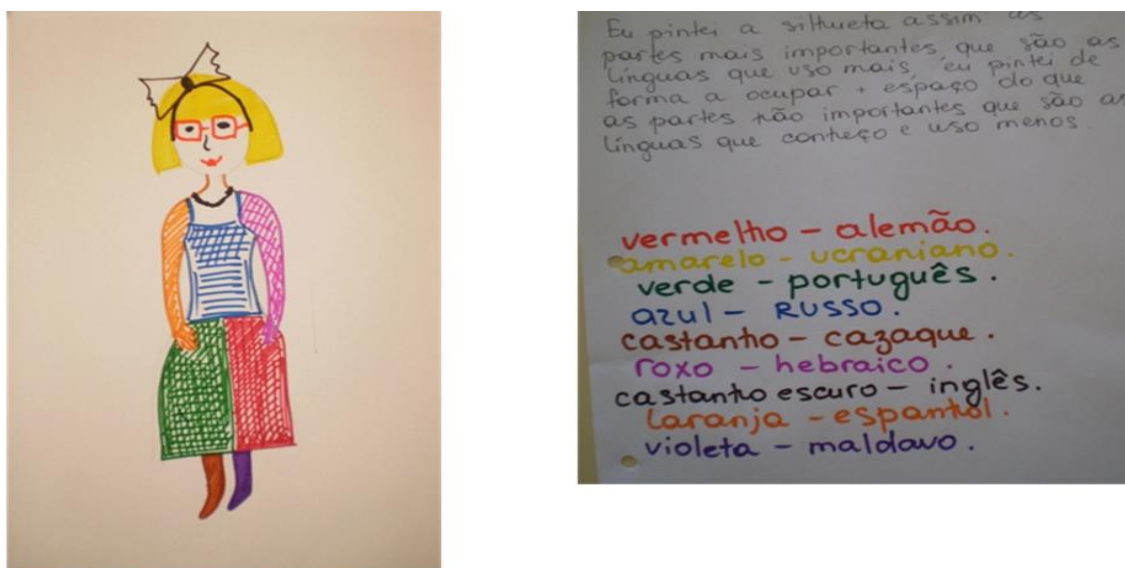 Eu pintei a silhueta assim as
partes mais importantes, que são as
línguas que uso mais, eu pintei de
forma a ocupar + espaço do que
as partes não importantes que são as
línguas que conheço e uso menos.
vermelho - alemão.
amarelo - ucraniano.
verde - português.
azul - RUSSO.
castanho - cazaque.
roxo - hebraico.
castanho escuro - inglês.
laranja - espanhol.
violeta - maldavo.